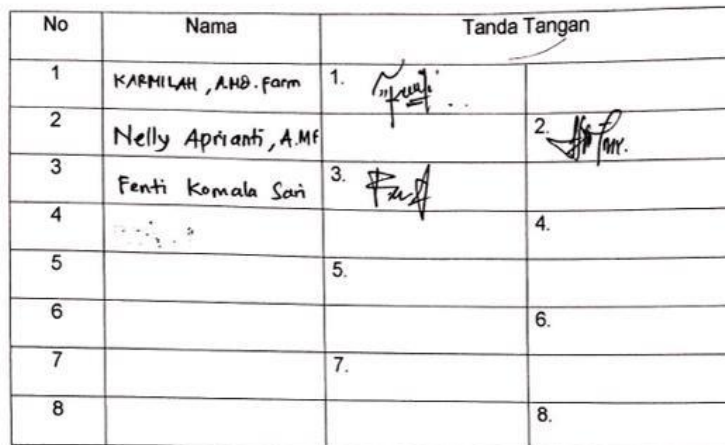 No Nama Tanda Tangan
1 KARMILAH, A.MD. Farm 1.
2 Nelly Aprianti, A.MF 2.
3 Fenti Komala Sari 3.
4 4.
5 5.
6 6.
7 7.
8 8.